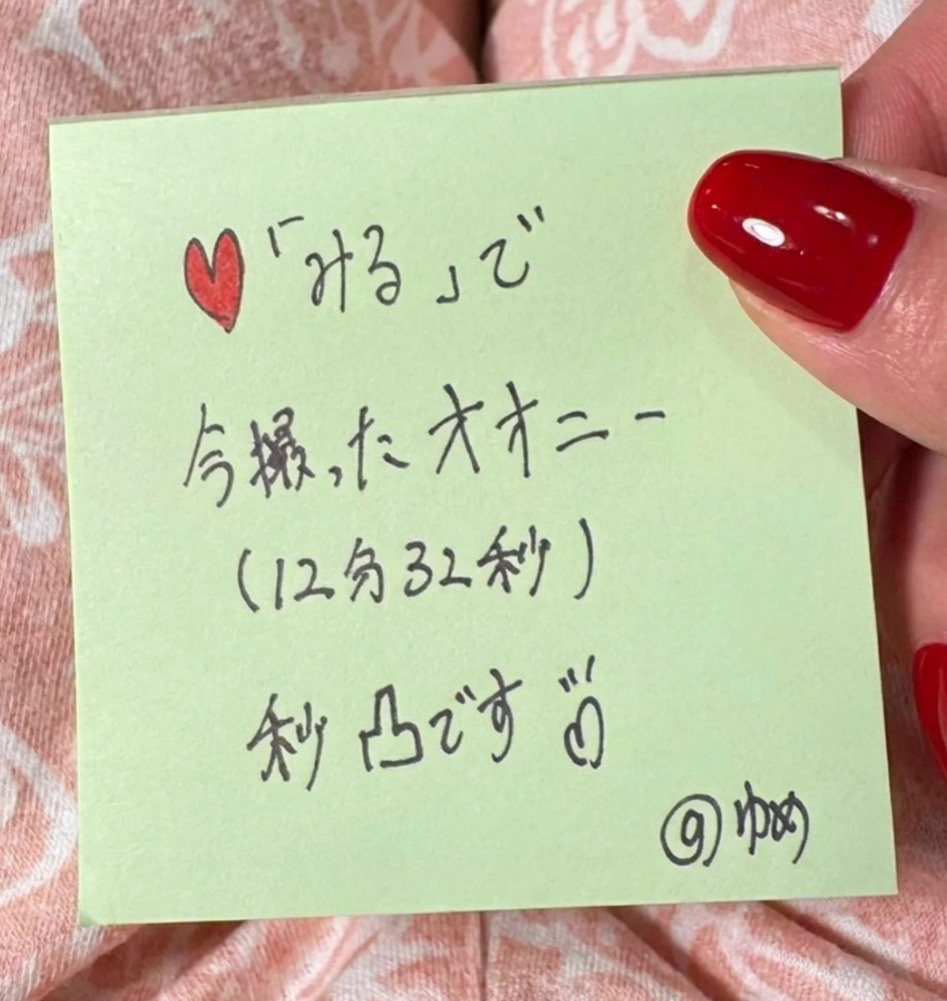 「みる」で
今撮ったオオニー
(12分32秒)
秒凸です
@ゆめ